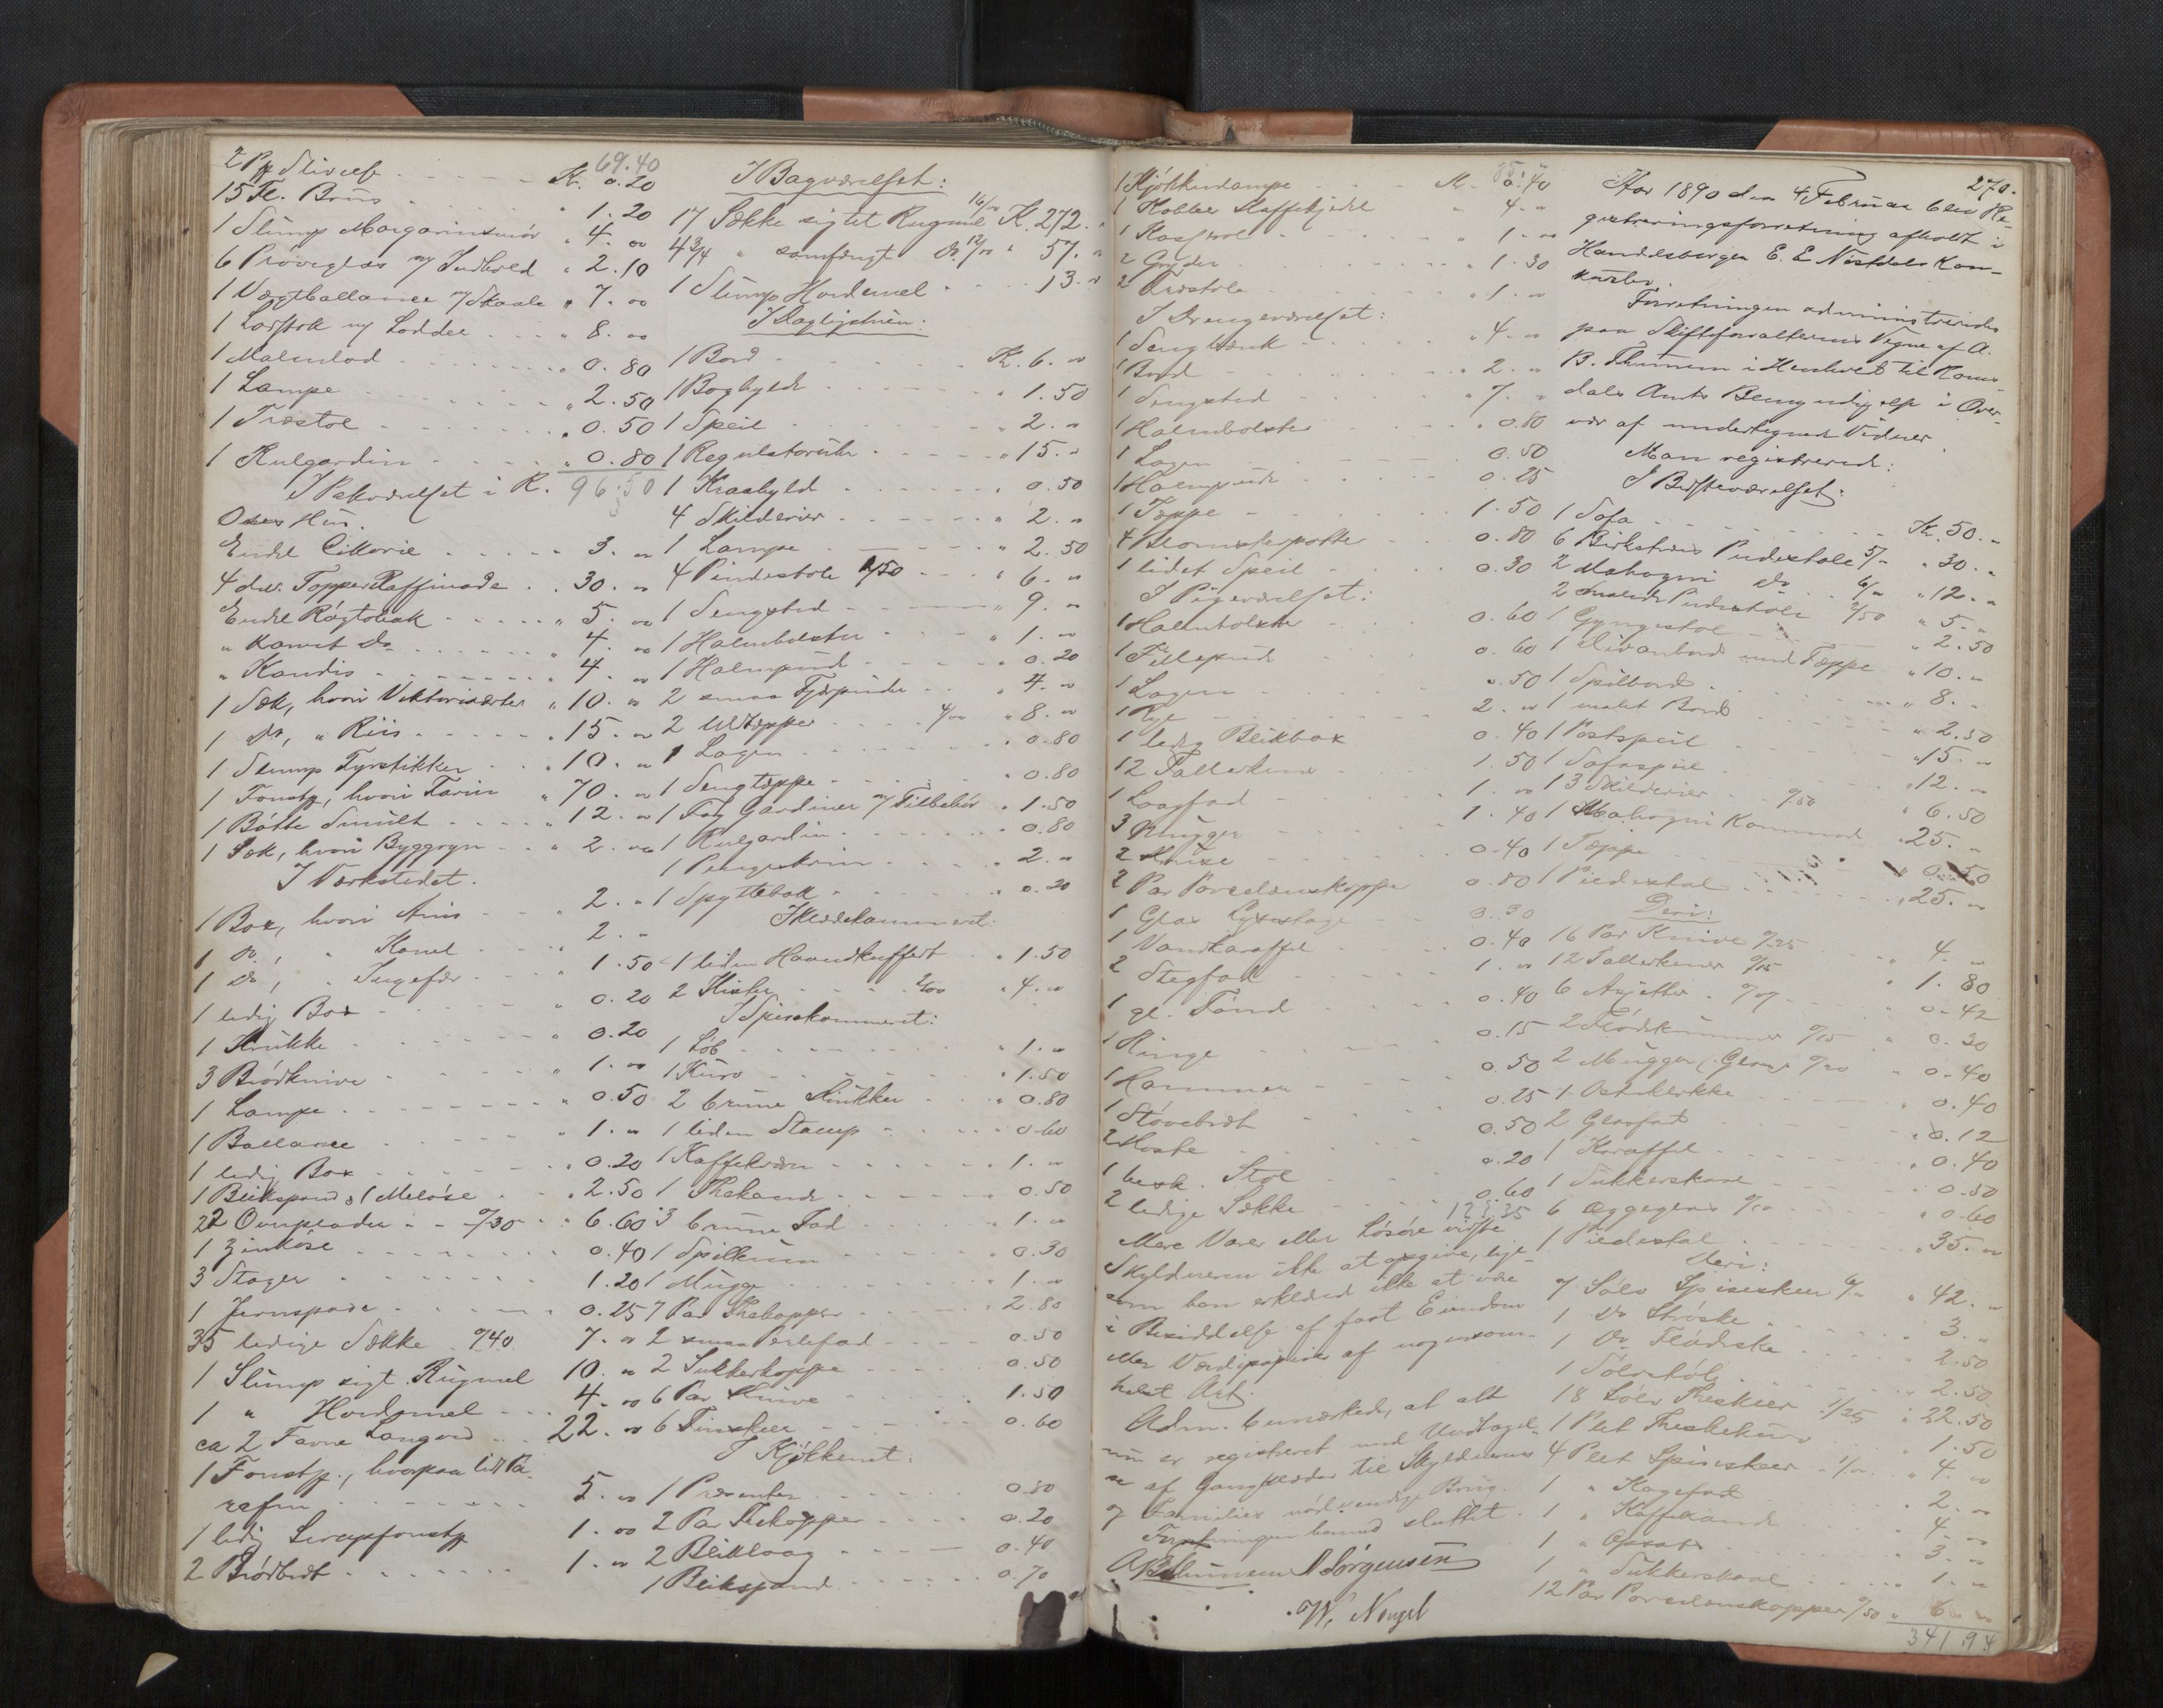 69.40
2 Pk Stivelse Kr. 0.20
15 Fl. Brus " 1.20
1 Slump Margarinsmør " 4. "
6 Prøveglas m/ Indhold " 2.10
1 Vægtballance m/ Skaale " 7. "
1 Lodstok m/ Lodder " 8. "
1 Malmlod " 0.80
1 Lampe " 2.50
1 Træstol " 0.50
1 Rulgardin " 0.80
I Pakværelset i K. 96.50
Oses Hus.
Endel Cikorie 3. "
4 do. Topper Raffinade 30. "
Endel Røgtobak " 5. "
" karvet Do " 4. "
" Kandis " 4. "
1 Sæk, hvori Viktoriaerter " 10. "
1 do, " Riis " 15. "
1 Slump Fyrstikker " 10. "
1 Foustg, hvori Farin " 70. "
1 Bøtte Smult " 12. "
1 Sæk, hvori Byggryn " 2. "
I Værkstedet.
1 Box, hvori Anis " 2. "
1 Do, " Kanel " 2. "
1 Do, " Ingefær " 1.50
1 ledig Box " 0.20
1 Krukke " 0.20
3 Brødknive " 1. "
1 Lampe " 0.50
1 Ballance " 1. "
1 ledig Box " 0.20
1 Blikspand Meløse " 2.50
22 Ovnplader 0/30 " 6.60
1 Zinkøse 0.40
3 Stager 1.20
1 Jernspade 0.25
35 ledige Sække 0/40 7. "
1 Slump sigt. Rugmel 10. "
1 " Hordmel 4. "
ca 2 Favne Langved 22. "
1 Foustg., hvorpaa lidt Pa-
rafin 5. "
1 ledig Sirupsfoustg 1. "
2 Brødbret 1. "
I Bagværelset:
17 Sække sigtet Rugmel 16/00 K. 272. "
4 3/4 " samfengt Do. 12/00 " 57. "
1 Slump Hordemel 13. "
I Dagligstuen:
1 Bord Kr. 6. "
1 Boghylde " 1.50
1 Speil " 2. "
1 Regulatoruhr " 15. "
1 Kraahyld " 0.50
4 Skilderier " 2. "
1 Lampe " 2.50
4 Pindestole 1/50 " 6. "
1 Sengsted " 9. "
1 Halmbolster " 1. "
1 Halmpude " 0.20
2 smaa Fjærpuder " 4. "
2 Uldtepper 4/00 " 8. "
1 Lagen " 0.80
1 Sengtæppe " 0.80
1 Fag Gardiner m/ Tilbehør " 1.50
1 Rulgardin 0.80
1 Pengeskrin 2. "
1 Spyttebak 0.20
I Klædekammeret:
1 liden Haandkuffert " 1.50
2 Kister 2/00 " 4. "
I Spisekammeret:
1 Løb " 1. "
1 Kurv " 1.50
2 brune Krukker " 0.80
1 liden Stamp 0.60
1 Kaffekværn 1. "
1 Thekande 0.50
3 brune Fad 1. "
1 Spilkum 0.30
1 Mugge 1. "
7 Par Thekopper 2.80
2 smaa Perlefad 0.50
2 Sukkerkoppe 0.50
6 Par Knive 1.50
6 Tinskeer 0.60
I Kjøkkenet:
1 Præsenter 0.50
2 Par Thekopper 0.20
2 Bliklaag 0.40
1 Blikspand 0.70
1 Kjøkkenlampe Kr. 0.40
1 Kobber Kaffekjedel " 4. "
1 Kasserol " 1. "
2 Gryder " 1.30
2 Træstole " 1. "
I Drengeværelset:
1 Sengbænk " 4. "
1 Bord " 2. "
1 Sengsted " 7. "
1 Halmbolster " 0.80
1 Lagen 0.50
1 Halmpude 0.25
1 Tæppe 1.50
4 Blomsterpotter 0.80
1 lidet Speil 0.30
I Pigeværelset:
1 Halmbolster 0.60
1 Fillepude 0.60
1 Lagen 0.50
1 Rye 2. "
1 ledig Blikbox 0.40
12 Tallerkener 1.50
1 Laagfad 1. "
3 Mugger 1.40
2 Kruse 0.40
2 Par Porcelænskopper 0.80
1 Glas Lysestage 0.30
1 Vandkaraffel 0.40
2 Stegfad 1. "
1 gl. Tønde 0.40
1 Ringe 0.15
1 Hammer 0.50
1 Støvebret 0.25
2 Koste 0.50
1 besk. Stol 0.20
2 ledige Sække 0.60
123.35
Mere Varer eller Løsøre vidste
Skyldneren ikke at opgive, lige-
som han erklæred ikke at være
i Besiddelse af fast Eiendom
eller Værdipapirer af nogensom-
helst Art.
Adm. bemerkede, at alt
nu er registreret med Undtagel-
se af Gangklæder til Skyldnerens
og Families nødvendige Brug.
Forretningen hermed sluttet.
A B Thunem Sørgensen
W. Neugel
270.
Aar 1890 den 4 Februar blev Re-
gistreringsforretning afholdt i
Handelsborger E. E Nistdals Kon-
kursbo.
Forretningen administreredes
paa Skifteforvalterens Vegne af A.
B. Thunem i Henhold til Roms-
dals Amts Bemyndigelse i Over-
vær af undertegnede Vidner
Man registrerede:
I Bedsteværelset:
1 Sofa Kr. 50. "
6 Birketræs Pindestole 5/- " 30. "
2 Mahogni do 6/- " 12. "
2 malede Pindestole 2/50 " 5. "
1 Gyngestol " 2.50
1 Divanbord med Tæppe " 10. "
1 Spilbord " 8. "
1 malet Bord " 2.50
1 Postspeil " 15. "
1 Sofaspeil " 12. "
13 Skilderier 0/50 " 6.50
1 Mahogni Kommod 25. "
1 Tæppe " 0.50
1 Piedestal " 25. "
Deri:
16 Par Knive 0/25 " 4. "
12 Tallerkener 0/15 " 1.80
6 Asjetter 0/07 0.42
2 Flødekummer 0/15 " 0.30
2 Mugger (Glas) 0/20 " 0.40
1 Osteklokke " 0.40
2 Glasfad " 0.12
1 Karaffel " 0.40
1 Sukkerskaal " 0.50
6 Æggeglas 0/10 " 0.60
1 Piedestal " 35. "
Deri:
7 Sølv Spiseskeer 6/- " 42. "
1 Do Strøske " 3. "
1 Do Flødeske " 2.50
1 Sølvskøl " 2.50
18 Sølv Theskeer 1/25 " 22.50
1 Plet Theskekurv 1.50
4 Plet Spiseskeer 1/00 " 4. "
1 " Kagefad " 2. "
1 " Kaffekande 4. "
1 " Opsats 3. "
1 " Sukkerskaal 1. "
12 Par Porcelænskopper 0/50 " 6. "
341.94